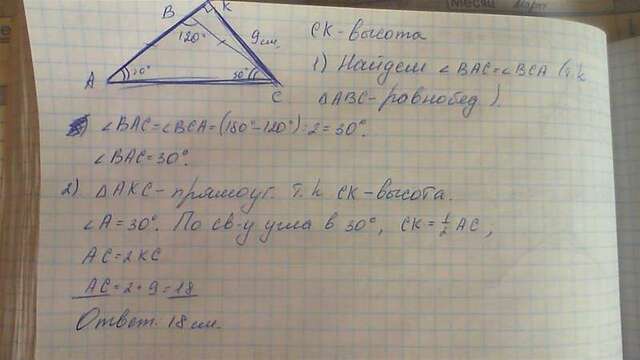 B K
120°
9 см.
A 30° 30° C
СК - высота
1) Найдем ∠BAC=∠BCA (т.к
△ABC - равнобед).
∠BAC=∠BCA=(180°-120°):2=30°.
∠BAC=30°.
2) △AKC - прямоуг. т.к СК - высота.
∠A=30°. По св-у угла в 30°, CK=½AC,
AC=2KC
AC=2*9=18
Ответ. 18 см.